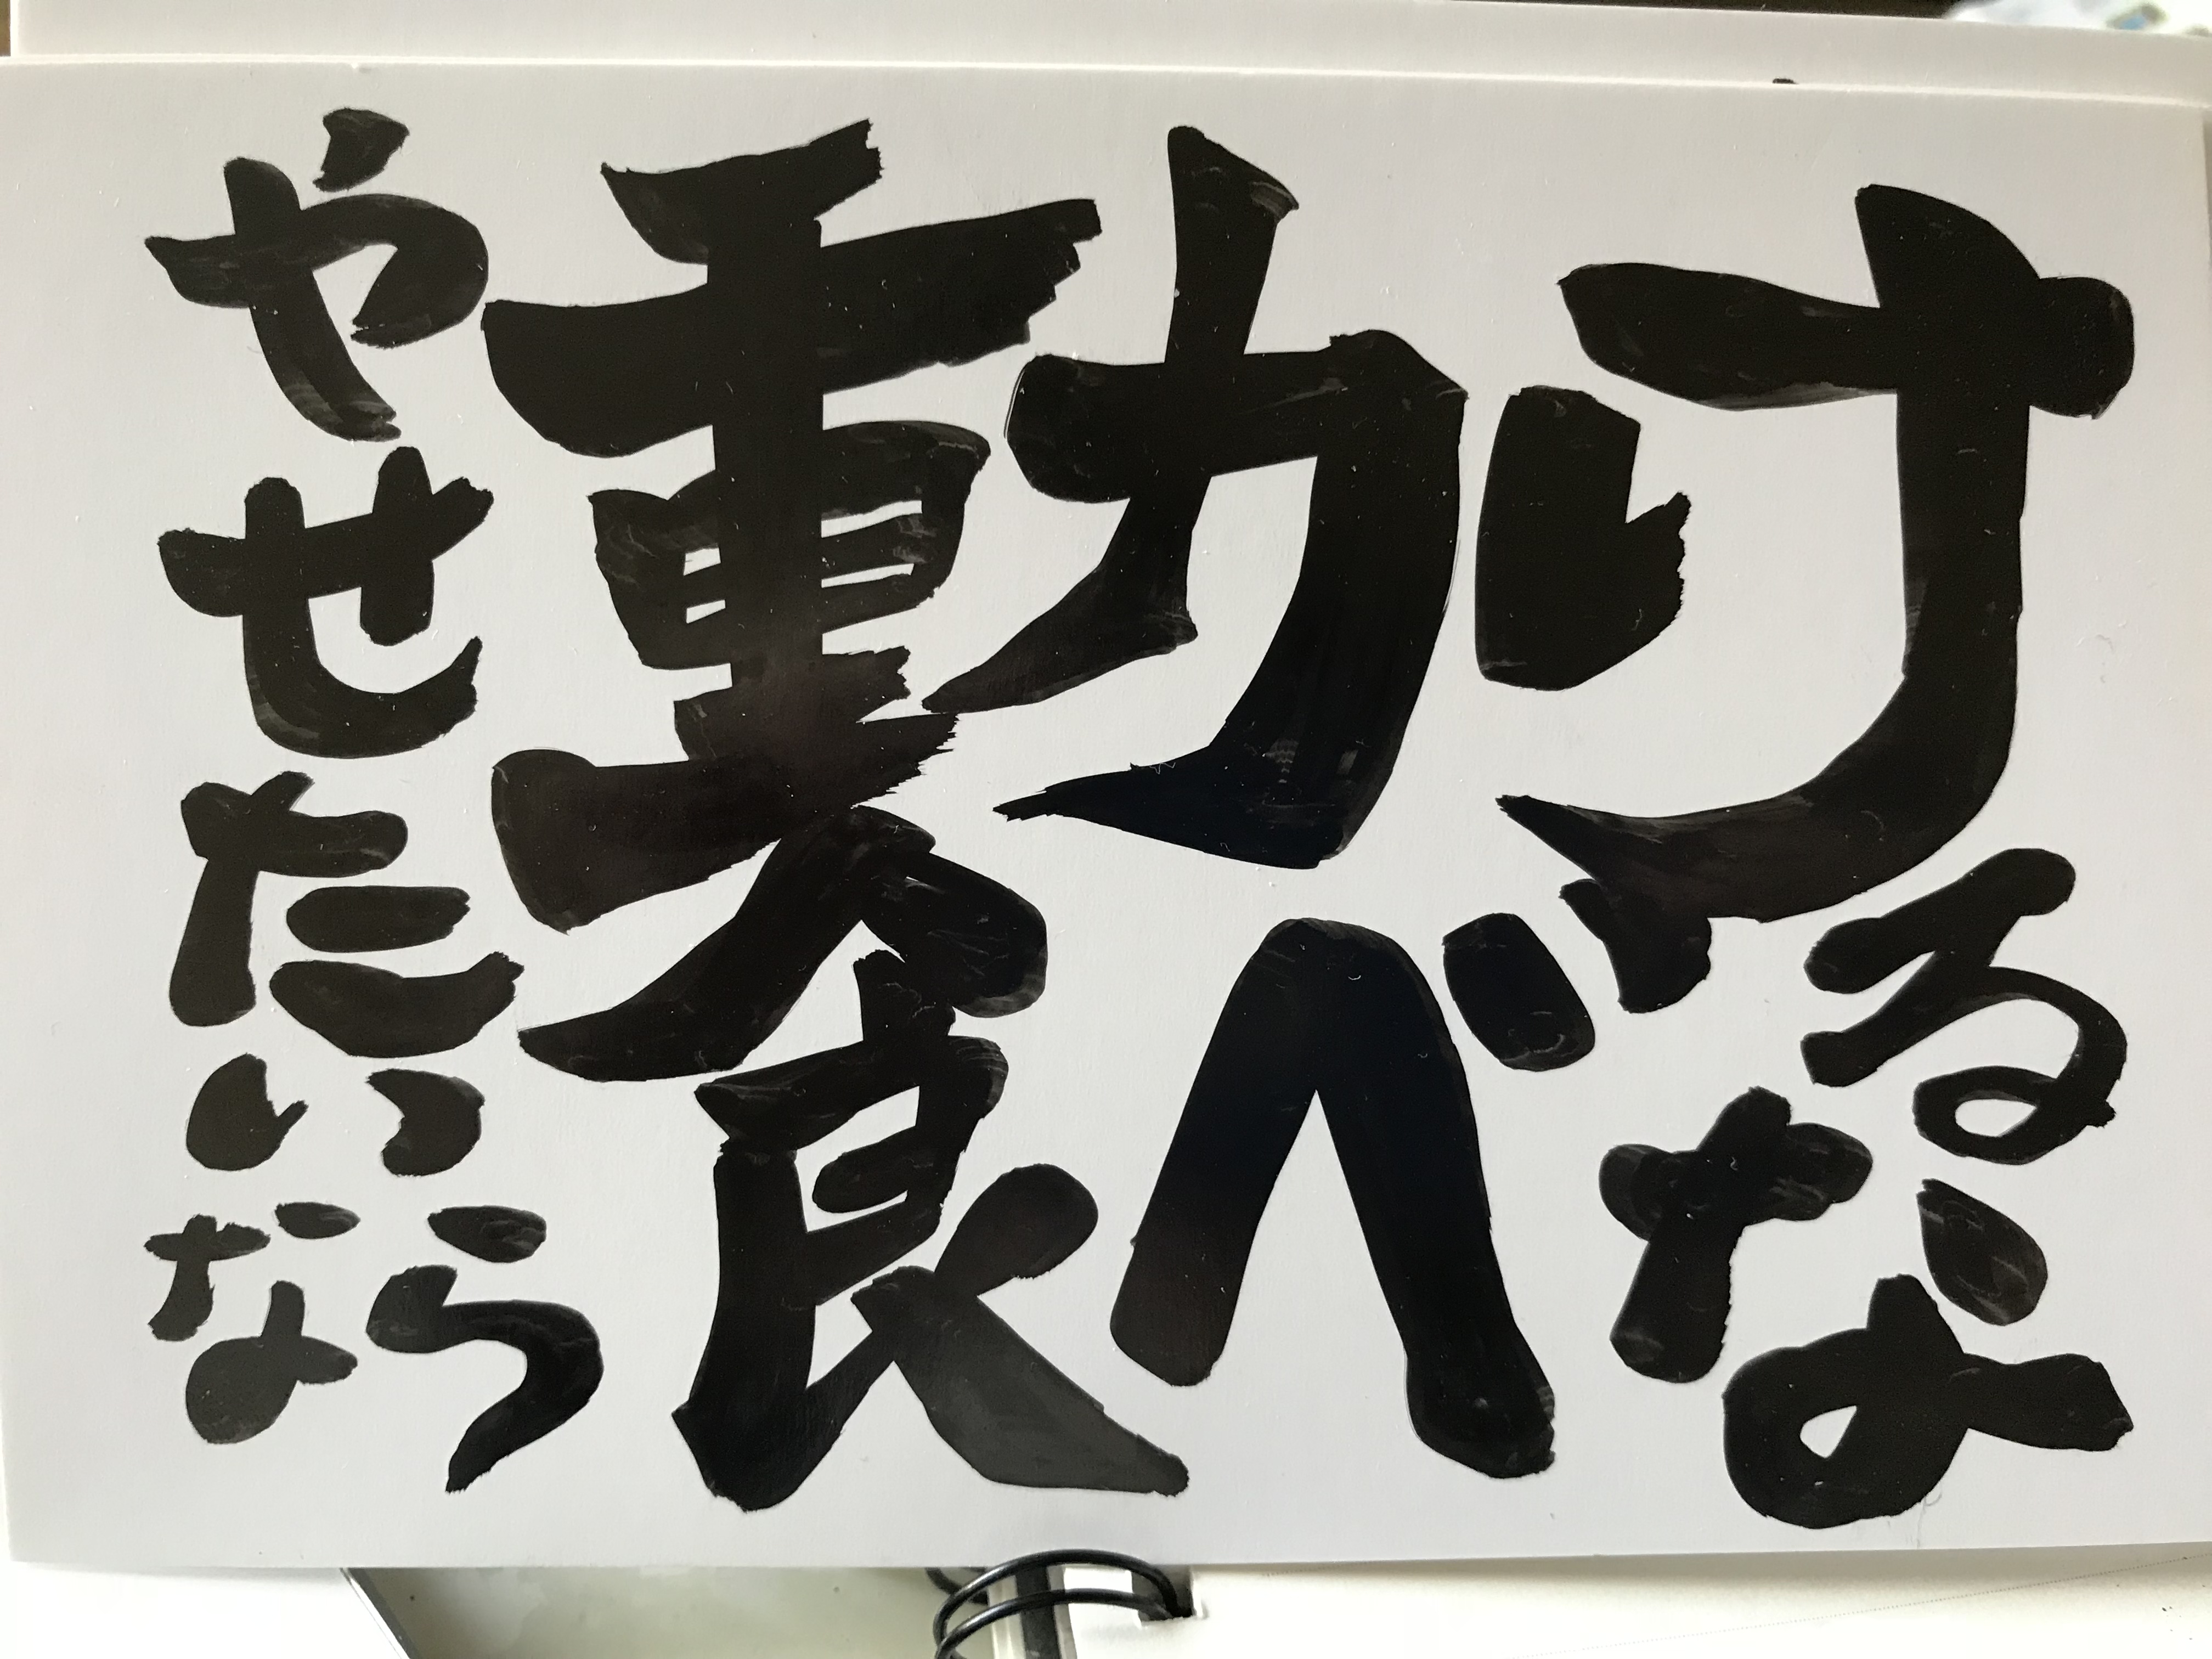 やせたいなら
動け
食べるな